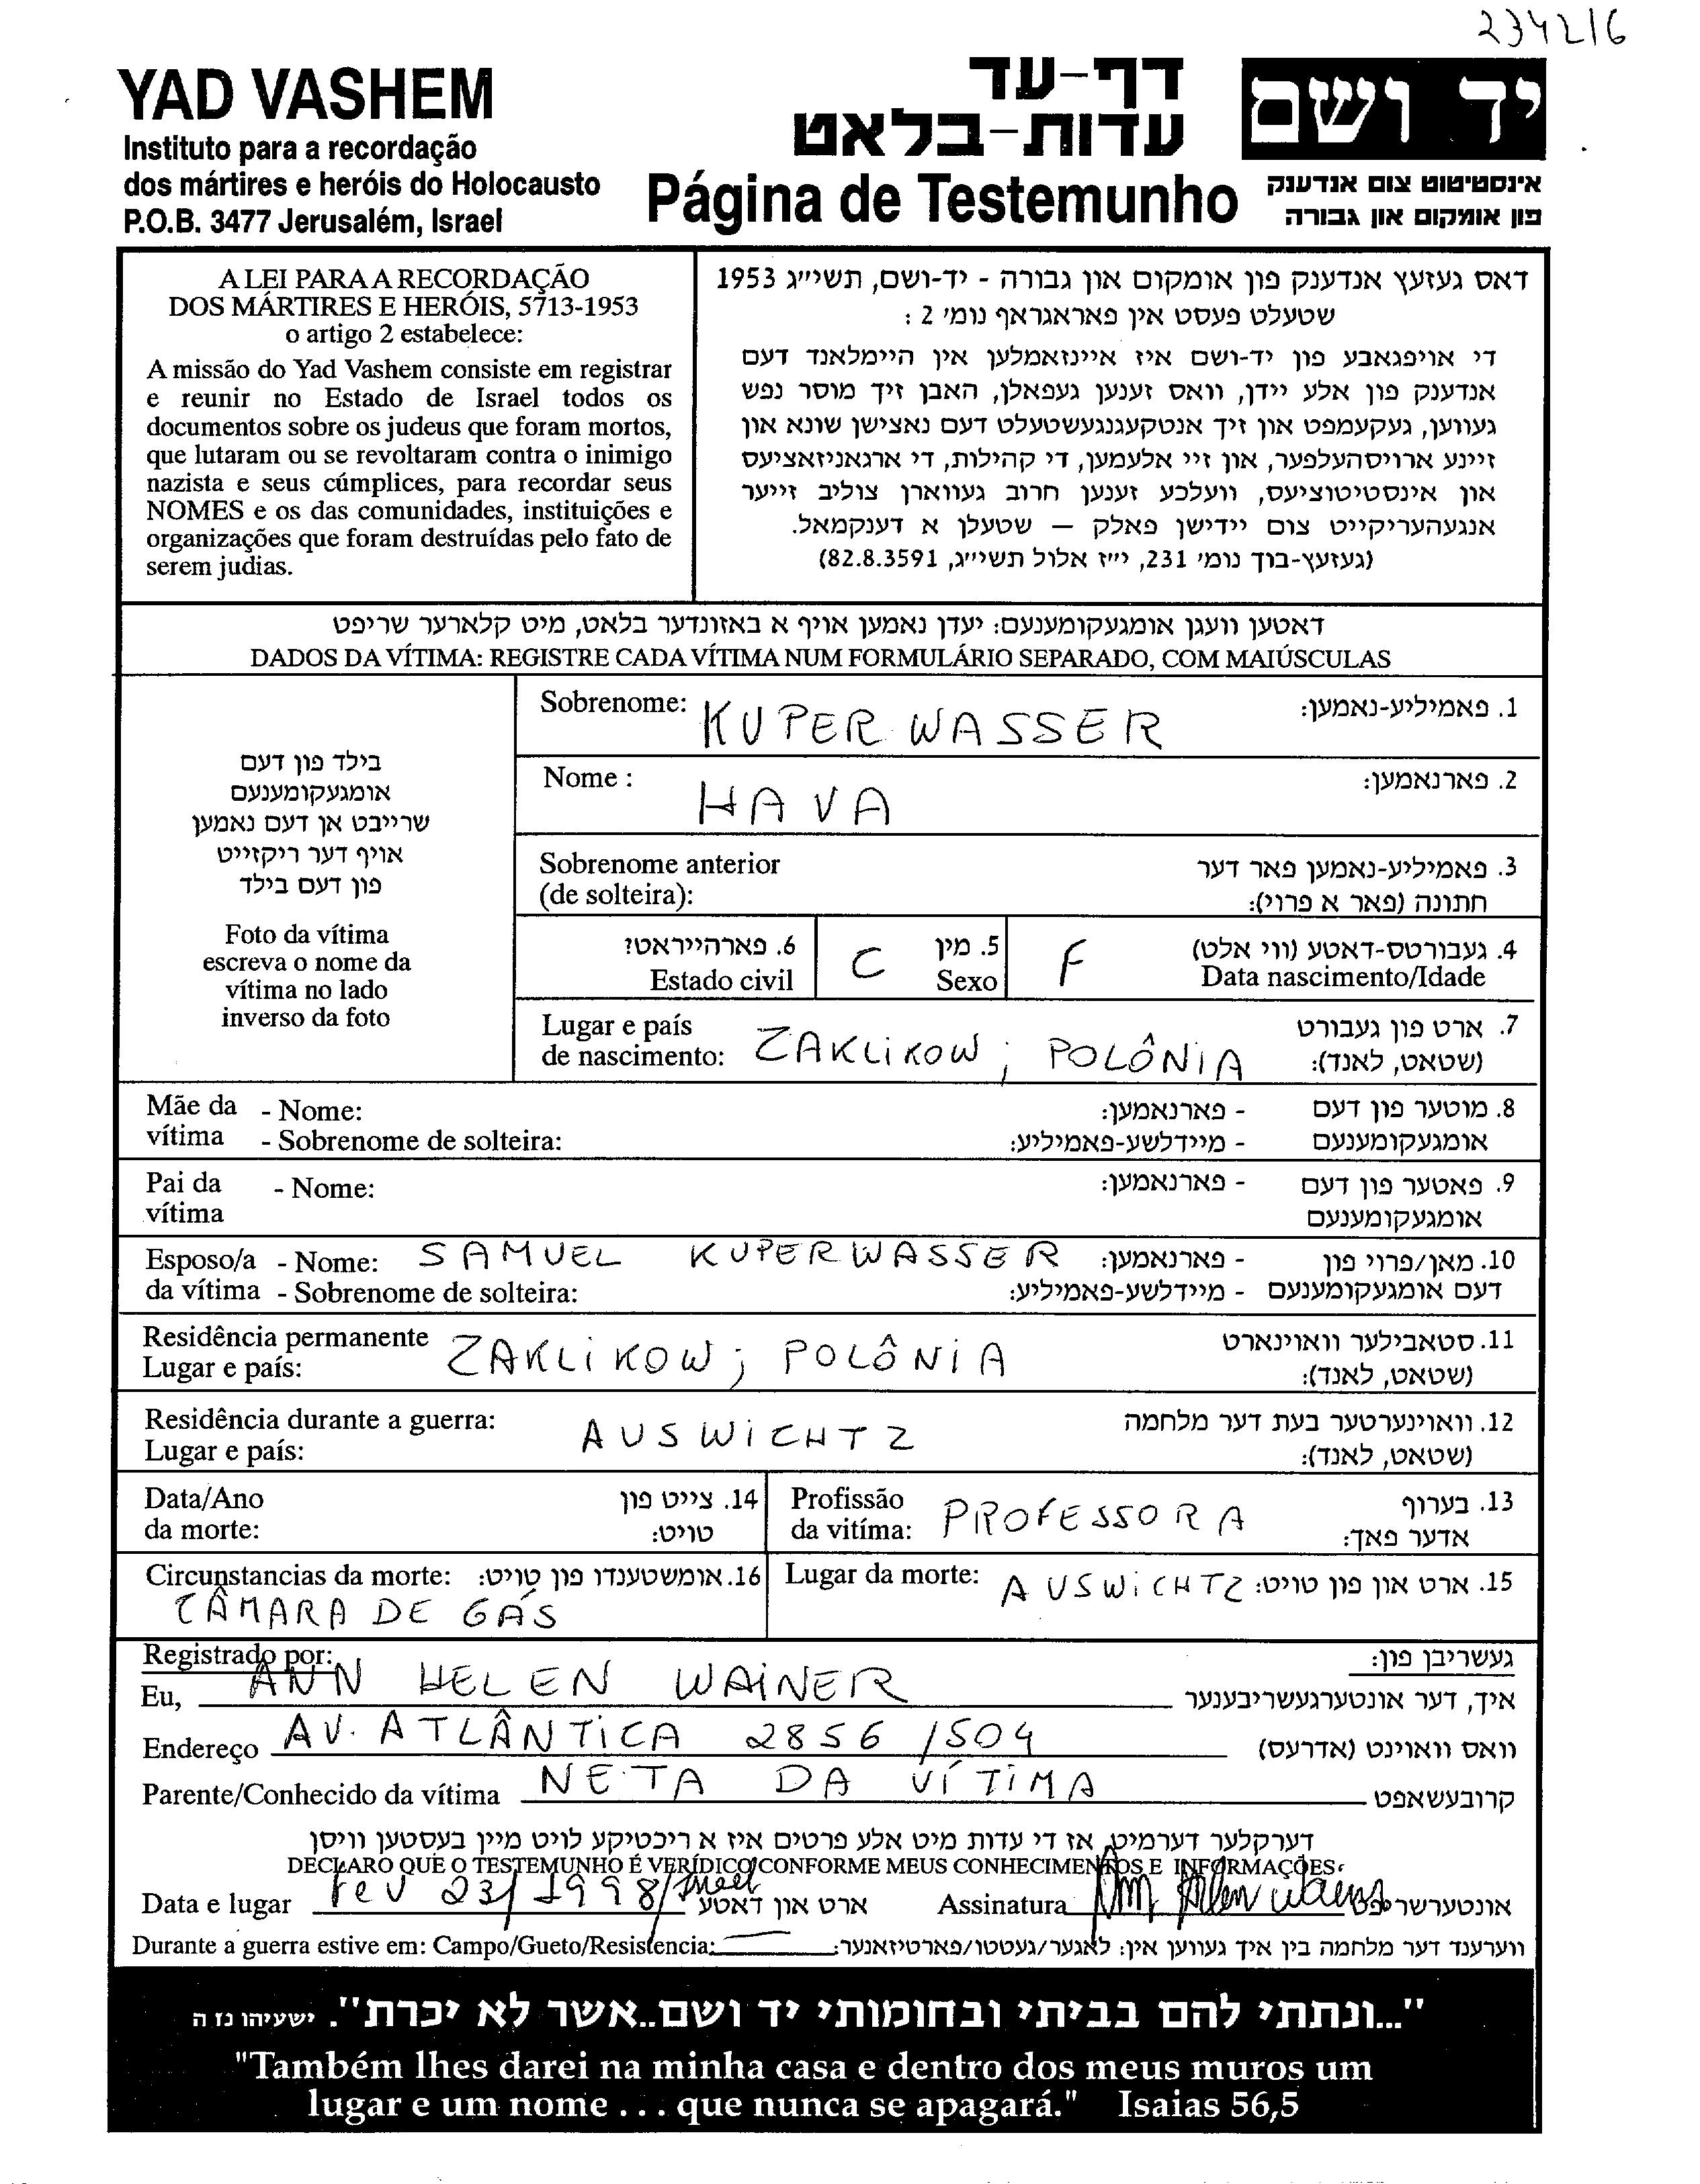 234216
YAD VASHEM
Instituto para a recordação
dos mártires e heróis do Holocausto
P.O.B. 3477 Jerusalém, Israel
דף-עד
עדות-בלאט
Página de Testemunho
יד ושם
אינסטיטוט צום אנדענק
פון אומקום און גבורה
A LEI PARA A RECORDAÇÃO
DOS MÁRTIRES E HERÓIS, 5713-1953
o artigo 2 estabelece:
A missão do Yad Vashem consiste em registrar
e reunir no Estado de Israel todos os
documentos sobre os judeus que foram mortos,
que lutaram ou se revoltaram contra o inimigo
nazista e seus cúmplices, para recordar seus
NOMES e os das comunidades, instituições e
organizações que foram destruídas pelo fato de
serem judias.
דאס געזעץ אנדענק פון אומקום און גבורה - יד-ושם, תשי״ג 1953
שטעלט פעסט אין פאראגראף נומ׳ 2 :
די אויפגאבע פון יד-ושם איז איינזאמלען אין היימלאנד דעם
אנדענק פון אלע יידן, וואס זענען געפאלן, האבן זיך מוסר נפש
געווען, געקעמפט און זיך אנטקעגנגעשטעלט דעם נאצישן שונא און
זיינע ארויסהעלפער, און זיי אלעמען, די קהילות, די ארגאניזאציעס
און אינסטיטוציעס, וועלכע זענען חרוב געווארן צוליב זייער
אנגעהעריקייט צום יידישן פאלק — שטעלן א דענקמאל.
(געזעץ-בוך נומ׳ 231, י״ז אלול תשי״ג, 82.8.3591)
דאטען וועגן אומגעקומענעם: יעדן נאמען אויף א באזונדער בלאט, מיט קלארער שריפט
DADOS DA VÍTIMA: REGISTRE CADA VÍTIMA NUM FORMULÁRIO SEPARADO, COM MAIÚSCULAS
בילד פון דעם
אומגעקומענעם
שרייבט אן דעם נאמען
אויף דער ריקזייט
פון דעם בילד
Foto da vítima
escreva o nome da
vítima no lado
inverso da foto
Sobrenome: KUPERWASSER 1. פאמיליע-נאמען:
Nome : HAVA 2. פארנאמען:
Sobrenome anterior 3. פאמיליע-נאמען פאר דער
(de solteira): חתונה (פאר א פרוי):
6. פארהייראט? C 5. מין F 4. געבורטס-דאטע (ווי אלט)
Estado civil Sexo Data nascimento/Idade
Lugar e país 7. ארט פון געבורט
de nascimento: ZAKLIKOW; POLÔNIA (שטאט, לאנד):
Mãe da - Nome: - פארנאמען: 8. מוטער פון דעם
vítima - Sobrenome de solteira: - מיידלשע-פאמיליע: אומגעקומענעם
Pai da - Nome: - פארנאמען: 9. פאטער פון דעם
vítima אומגעקומענעם
Esposo/a - Nome: SAMUEL KUPERWASSER - פארנאמען: 10. מאן/פרוי פון
da vítima - Sobrenome de solteira: - מיידלשע-פאמיליע: דעם אומגעקומענעם
Residência permanente 11. סטאבילער וואוינארט
Lugar e país: ZAKLIKOW; POLÔNIA (שטאט, לאנד):
Residência durante a guerra: AUSWICHTZ 12. וואוינערטער בעת דער מלחמה
Lugar e país: (שטאט, לאנד):
Data/Ano 14. צייט פון
da morte: טויט:
Profissão 13. בערוף
da vitíma: PROFESSORA אדער פאך:
Circunstancias da morte: 16. אומשטענדן פון טויט:
CÂMARA DE GÁS
Lugar da morte: AUSWICHTZ 15. ארט און פון טויט:
Registrado por: געשריבן פון:
Eu, ANN HELEN WAINER איך, דער אונטערגעשריבענער
Endereço AV. ATLÂNTICA 2856 /504 וואס וואוינט (אדרעס)
Parente/Conhecido da vítima NETA DA VÍTIMA קרובעשאפט
דערקלער דערמיט, אז די עדות מיט אלע פרטים איז א ריכטיקע לויט מיין בעסטען וויסן
DECLARO QUE O TESTEMUNHO É VERÍDICO CONFORME MEUS CONHECIMENTOS E INFORMAÇÕES
Data e lugar Fev 23/1998/ ארט און דאטע Assinatura Ann Helen Wainer אונטערשריפט
Durante a guerra estive em: Campo/Gueto/Resistencia: ווערענד דער מלחמה בין איך געווען אין: לאגער/געטטו/פארטיזאנער:
"...ונתתי להם בביתי ובחומותי יד ושם..אשר לא יכרת". ישעיהו נז ה
"Também lhes darei na minha casa e dentro dos meus muros um
lugar e um nome . . . que nunca se apagará." Isaias 56,5